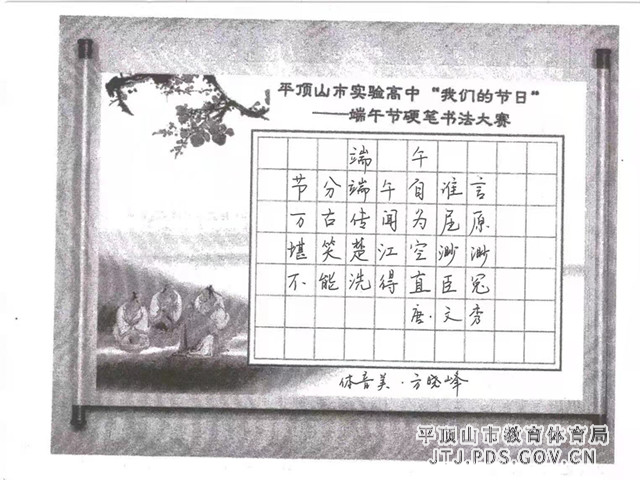 平顶山市实验高中“我们的节日”
——端午节硬笔书法大赛
端午
节分端午自谁言
万古传闻为屈原
堪笑楚江空渺渺
不能洗得直臣冤
唐·文秀
体音美·方晓峰
平顶山市教育体育局
JTJ.PDS.GOV.CN